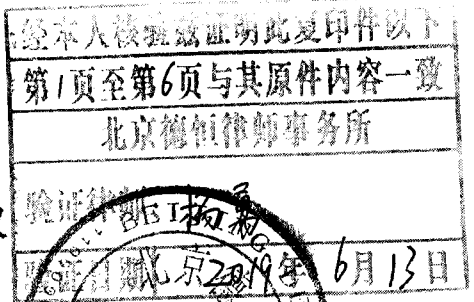 经本人核验兹证明此复印件以下
第1页至第6页与其原件内容一致
北京德恒律师事务所
验证律师
BEI
验证日期 北京 2019年6月13日